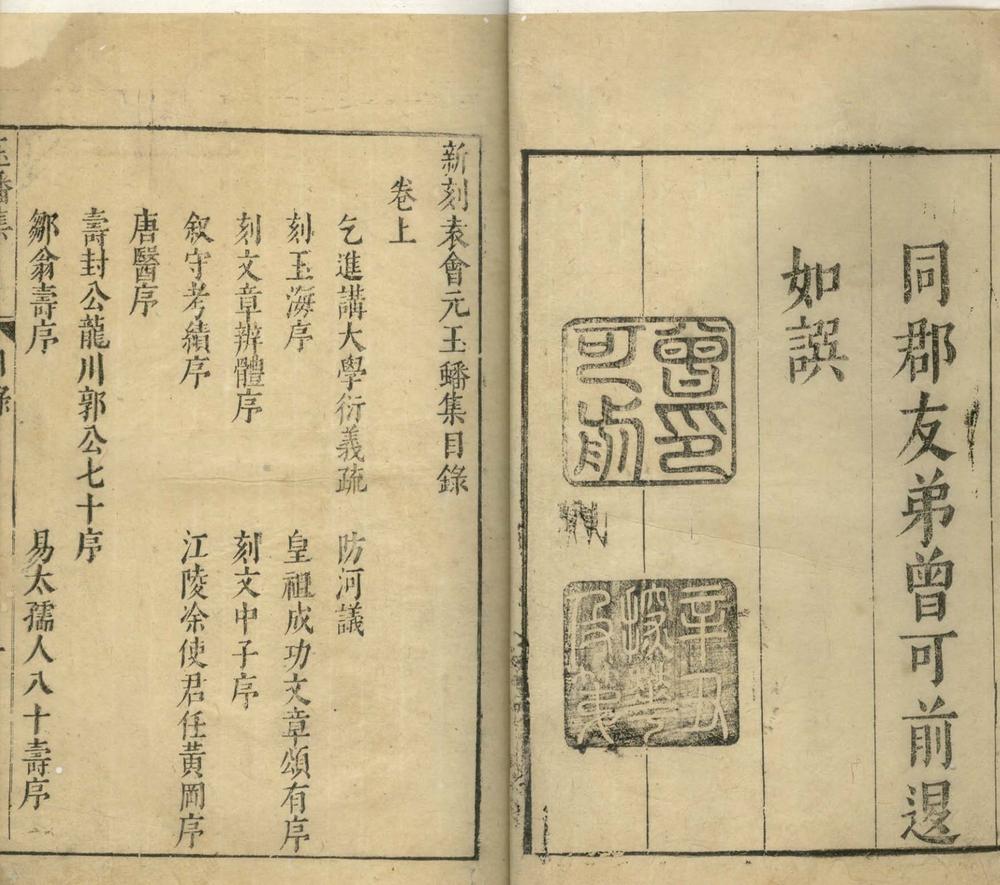 同郡友弟曾可前退
如譔
曾印
可前
辛丑
探花
及第
新刻袁會元玉蟠集目錄
卷上
乞進講大學衍義疏　防河議
刻玉海序　皇祖成功文章頌有序
刻文章辨體序　刻文中子序
叙守考績序　江陵凃使君任黃岡序
唐醫序
壽封公龍川郭公七十序
鄒翁壽序　易太孺人八十壽序
玉蟠集　目錄